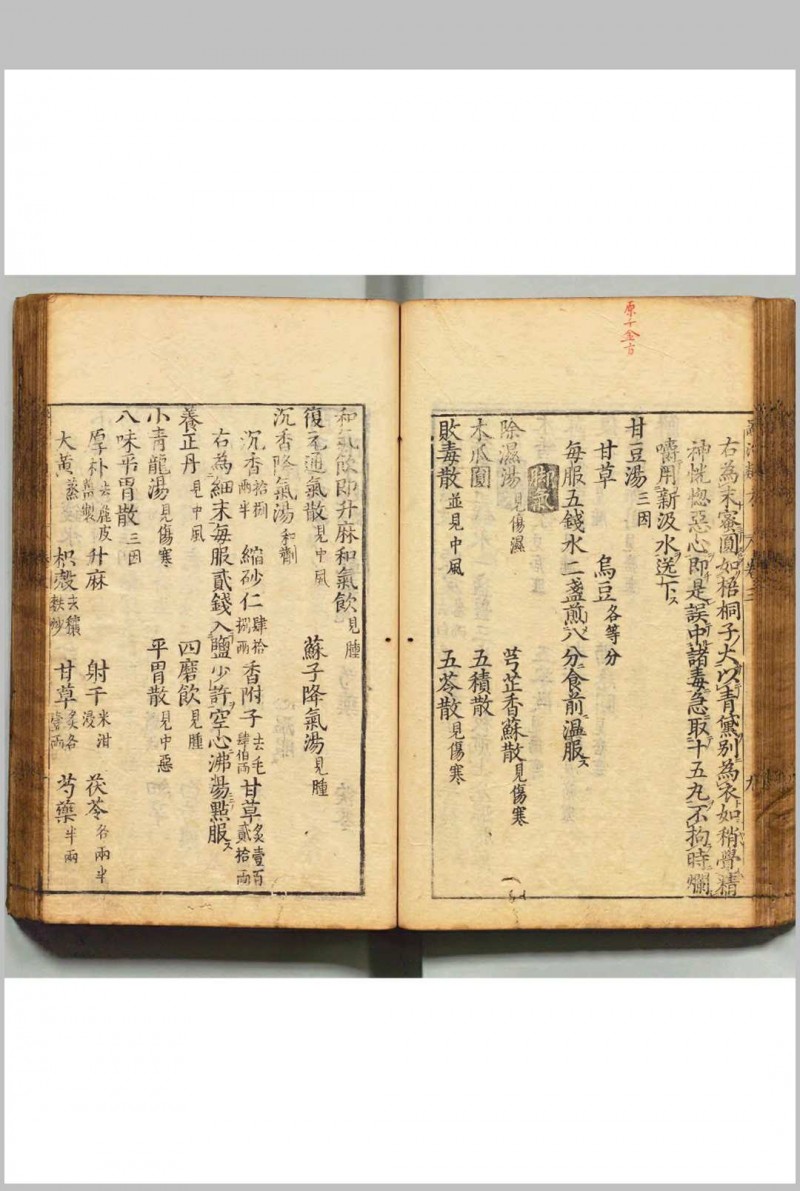 原千金方
右為末蜜圓如梧桐子大以青黛別為衣如稍覺精
神恍惚惡心即是誤中諸毒急取十五丸不拘時爛
嚼用新汲水送下ス
甘豆湯三因
甘草 烏豆各等分
每服五錢水二盞煎八分食前溫服ス
脚氣
除濕湯見傷濕 芎芷香蘇散見傷寒
木瓜圓 五積散
敗毒散並見中風 五苓散見傷寒
和氣飲即升麻和氣飲見腫
復元通氣散見中風 蘇子降氣湯見腫
沉香降氣湯和劑
沉香拾捌兩半 縮砂仁肆拾捌兩 香附子去毛肆伯兩 甘草炙壹百貳拾兩
右為細末每服貳錢入鹽少許空心沸湯點服ス
養正丹見中風 四磨飲見腫
小青龍湯見傷寒 平胃散見中惡
八味平胃散三因
厚朴去麁皮薑製 升麻 射干米泔浸 茯苓各兩半
大黃蒸 枳殼去穰麩炒 甘草炙各壹兩 芍藥半兩